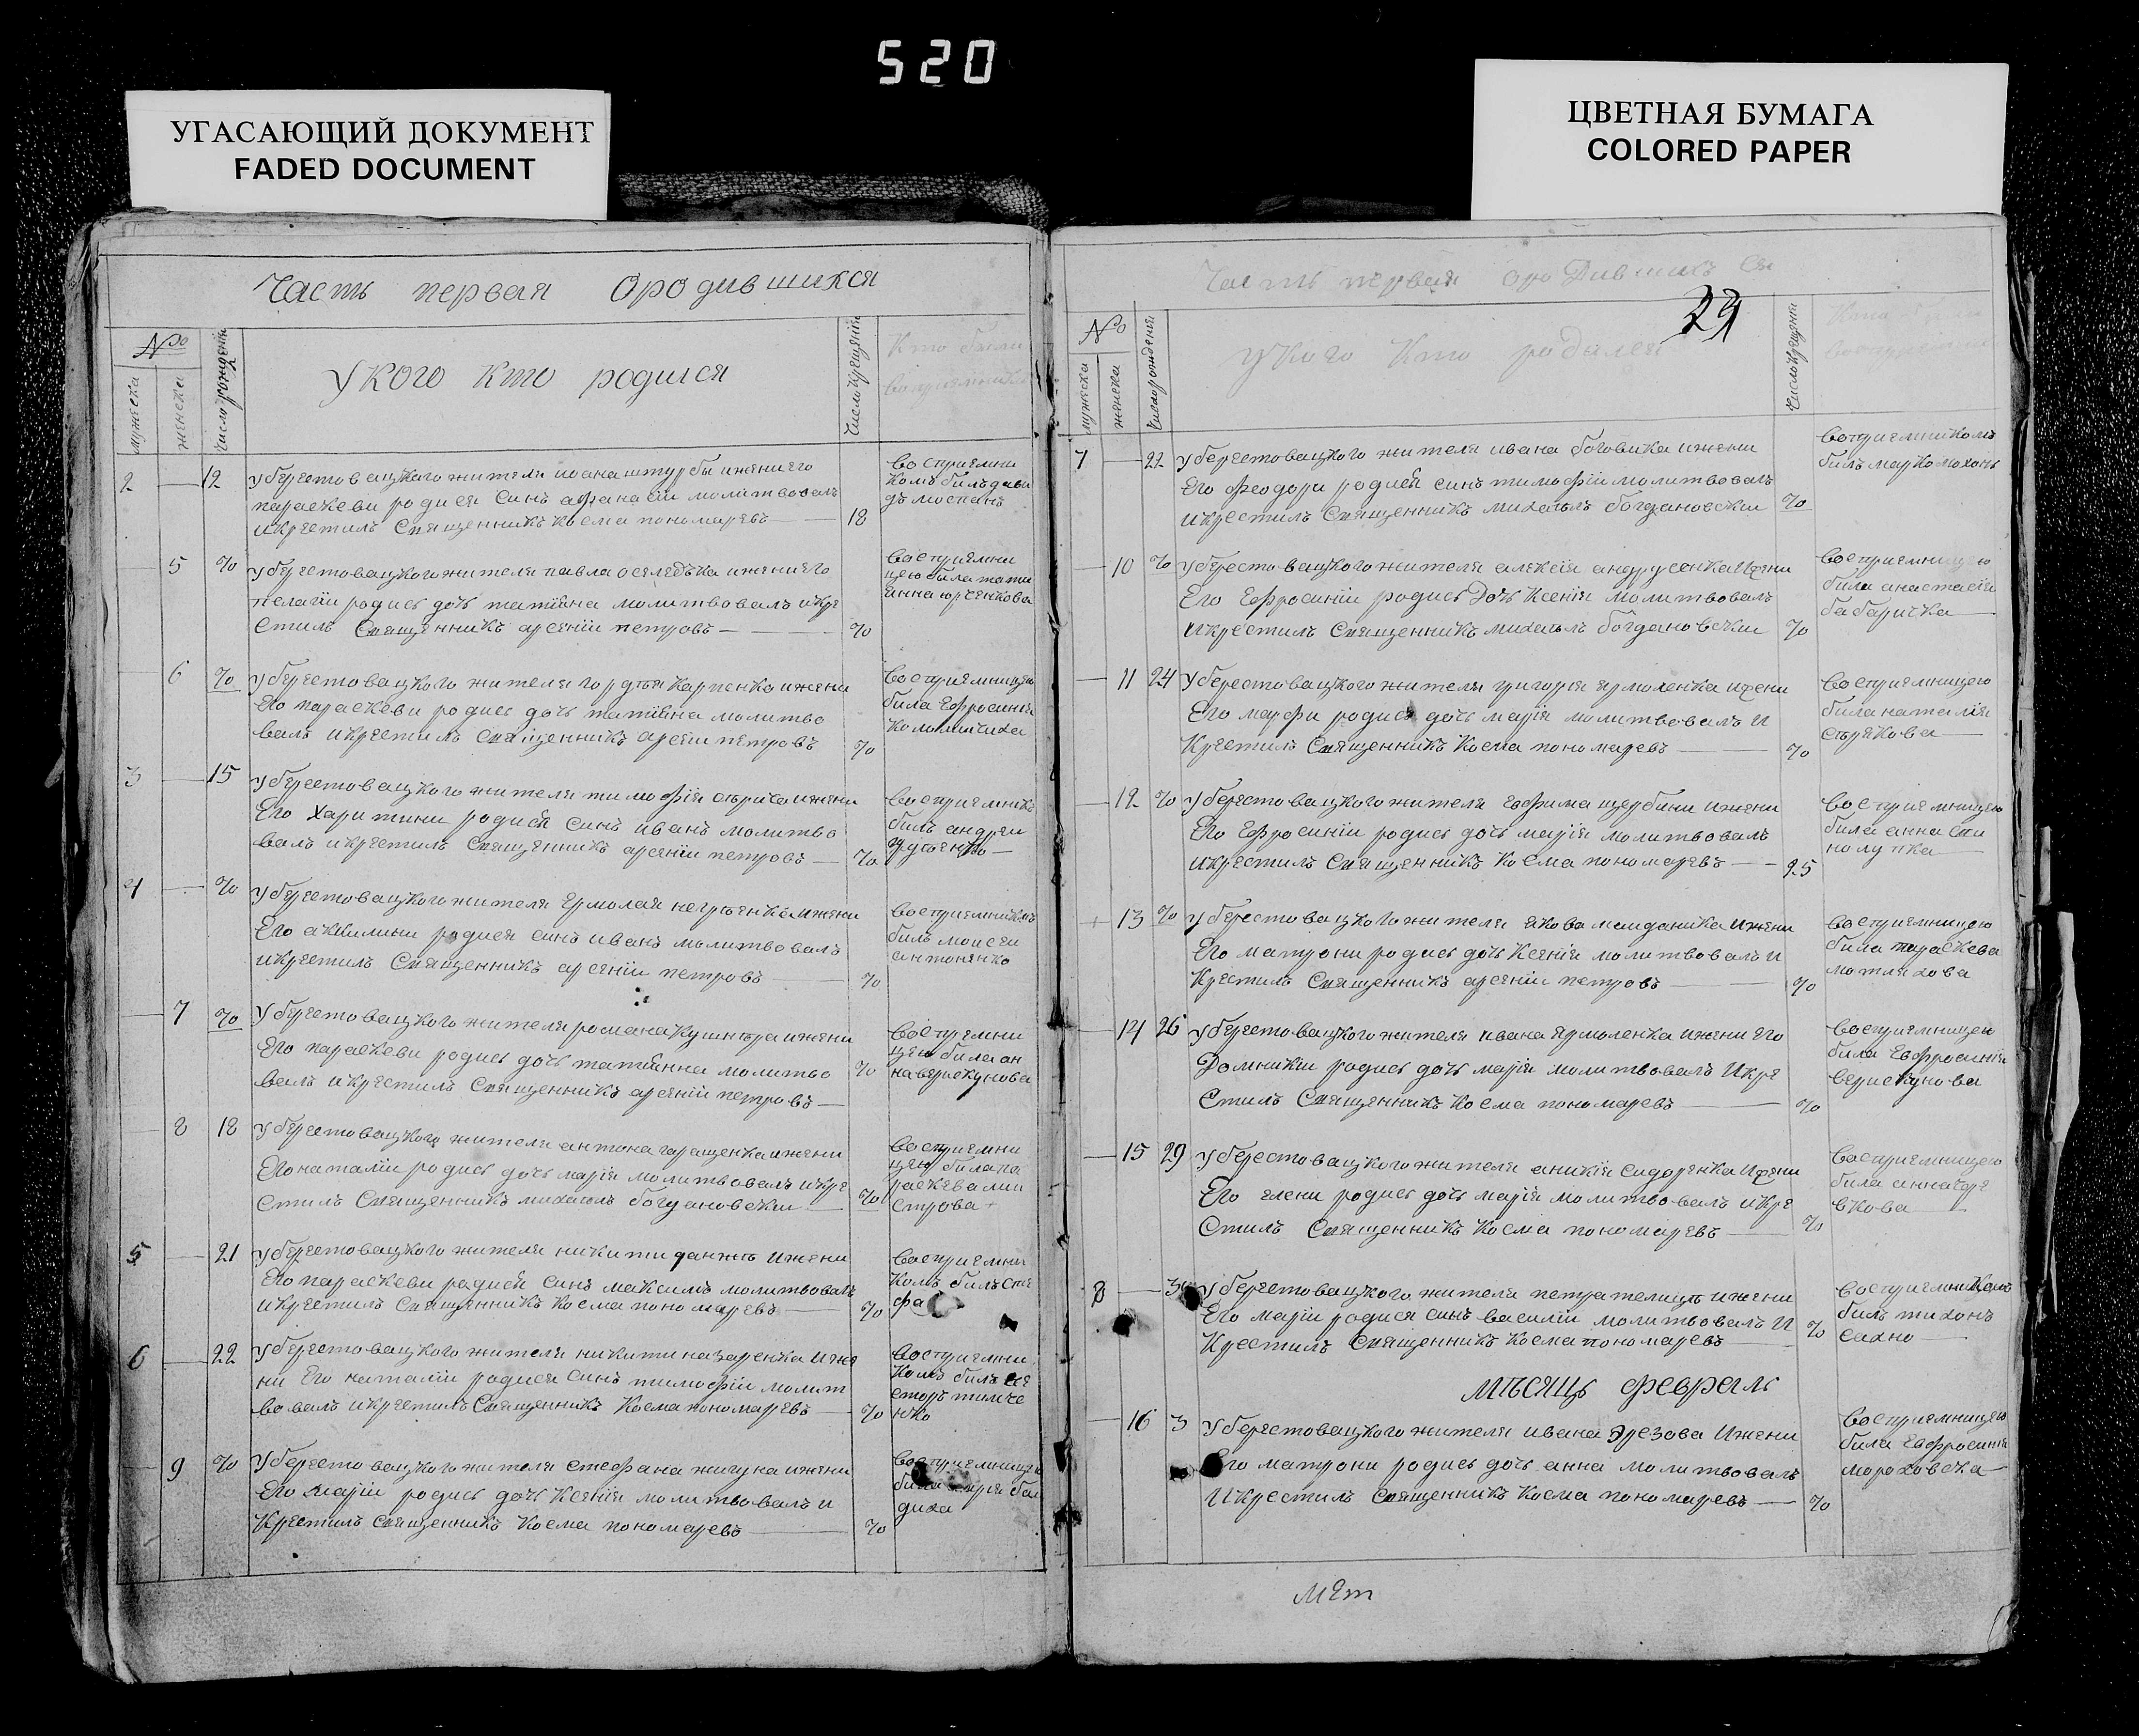 520
УГАСАЮЩИЙ ДОКУМЕНТ
FADED DOCUMENT
ЦВЕТНАЯ БУМАГА
COLORED PAPER
Часть первая ородившихся
№
мужеска
женска
число рождения
укого кто родился
число крещения
Кто были
восприемники
2 12 уберестовацкого жителя иоана штурбы ижени его
параскеви родися синъ афанасіи молитвовалъ
икрестилъ Священникъ Косма пономаревъ 18
восприемни
комъ билъ дави
дъ моспанъ
5 % уберестовацкого жителя павла оселедъка ижени его
пелагіи родись дочь татіяна молитвовалъ икре
стилъ Священникъ арсеніи петровъ %
восприемни
цею била тати
янна юрченкова
6 % уберестовацкого жителя гордѣя карпенка ижени
Его параскеви родись дочь татіяна молитво
валъ икрестилъ Священникъ арсеніи петровъ %
восприемницею
била Ефросиния
коломийчиха
3 15 уберестовацкого жителя тимофія ижени
Его Харитини родися синъ иванъ молитво
валъ икрестилъ Священникъ арсеніи петровъ %
восприемнико
билъ андреи
4 % уберестовацкого жителя Ермолая ижени
Его акилини родися синъ иванъ молитвовалъ
икрестилъ Священникъ арсеніи петровъ %
восприемникомъ
билъ моисеи
антоненко
7 % уберестовацкого жителя романа кушнѣра ижени
Его параскеви родись дочь татіянна молитво
валъ икрестилъ Священникъ арсеніи петровъ %
восприемни
цею била ан
на верескунова
8 18 уберестовацкого жителя антона геращенка ижени
Его наталіи родись дочь марія молитвовалъ икре
стилъ Священникъ михаилъ богдановскии %
восприемни
цею била па
раскева мии
строва
5 21 уберестовацкого жителя никити ижени
Его параскеви родися синъ максимъ молитвовалъ
икрестилъ Священникъ Косма пономаревъ %
восприемни
комъ билъ сте
фа
6 22 уберестовацкого жителя никити назаренка ижи
ни Его наталіи родися синъ тимофіи молит
вовалъ икрестилъ Священникъ Косма пономаревъ %
восприемни
комъ билъ не
сторъ тимче
нко
9 % уберестовацкого жителя стефана жигуна ижени
Его маріи родись дочь Ксенія молитвовалъ и
Крестилъ Священникъ Косма пономаревъ %
восприемницею
била марія бай
диха
Часть первая ородившихъ ся
29
№
мужеска
женска
число рождения
укого Кто родился
число крещения
Кто били
восприемники
7 22 уберестовацкого жителя ивана боговика ижени
Его феодори родися синъ тимофіи молитвовалъ
икрестилъ Священникъ михаилъ богдановскии %
восприемникомъ
билъ марко мохонь
10 % уберестовацкого жителя алексія андрусенка ижени
Его Ефросиніи родись Дочь Ксенія молитвовалъ
икрестилъ Священникъ михаилъ богдановскии %
восприемницею
била анастасія
бабаричка
11 24 уберестовацкого жителя григорія ярмоленка ижени
Его марфи родись дочь марія молитвовалъ и
Крестилъ Священникъ Косма пономаревъ %
восприемницею
била наталія
12 % уберестовацкого жителя Евфима щербини ижени
Его Ефросиніи родись дочь марія молитвовалъ
икрестилъ Священникъ Косма пономаревъ 25
восприемницею
била анна
13 % уберестовацкого жителя якова маиданика ижени
Его матрони родись дочь Ксенія молитвовалъ и
Крестилъ Священникъ арсеніи петровъ %
восприемницею
била параскева
мотляхова
14 26 уберестовацкого жителя ивана ярмоленка ижени Его
Домникіи родись дочь марія молитвовалъ икре
Стилъ Священникъ Косма пономаревъ %
восприемницею
била Евфросинія
верискунова
15 29 уберестовацкого жителя аникія сидоренка ижени
Его елени родись дочь марія молитвовалъ икре
Стилъ Священникъ Косма пономаревъ %
восприемницею
била анна
вкова
8 уберестовацкого жителя петра ижени
Его маріи родися синъ василіи молитвовалъ и
Крестилъ Священникъ Косма пономаревъ %
восприемникомъ
билъ тихонъ
сахно
мѣсяцъ февраль
16 3 уберестовацкого жителя ивана ижени
Его матрони родись дочь анна молитвовалъ
икрестилъ Священникъ Косма пономаревъ %
восприемницею
била Евфросинія
мороховска
мет